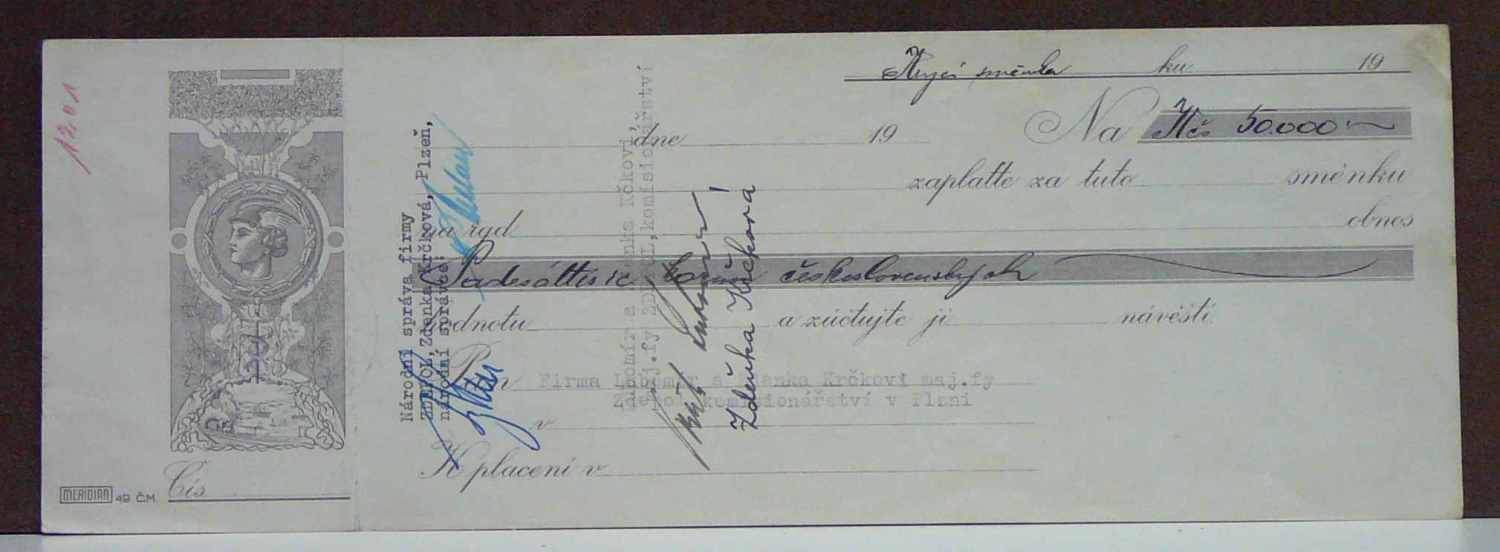 1201
směnka ku 19
dne 19 Na Kčs 50.000'-
zaplaťte za tuto směnku
na řad obnos
Padesáttisíc korun československých
hodnotu a zúčtujte ji návěští
P. v Firma Lubomír a Zdenka Krčkovi maj.fy
komisionářství v Plzni
v
K placení v
Čís.
MERIDIAN 49 ČM.
Národní správa firmy
ZDEPOL, Zdenka Krčková, Plzeň,
národní správce:
maj.fy komisionářství
Zdeňka Krčková